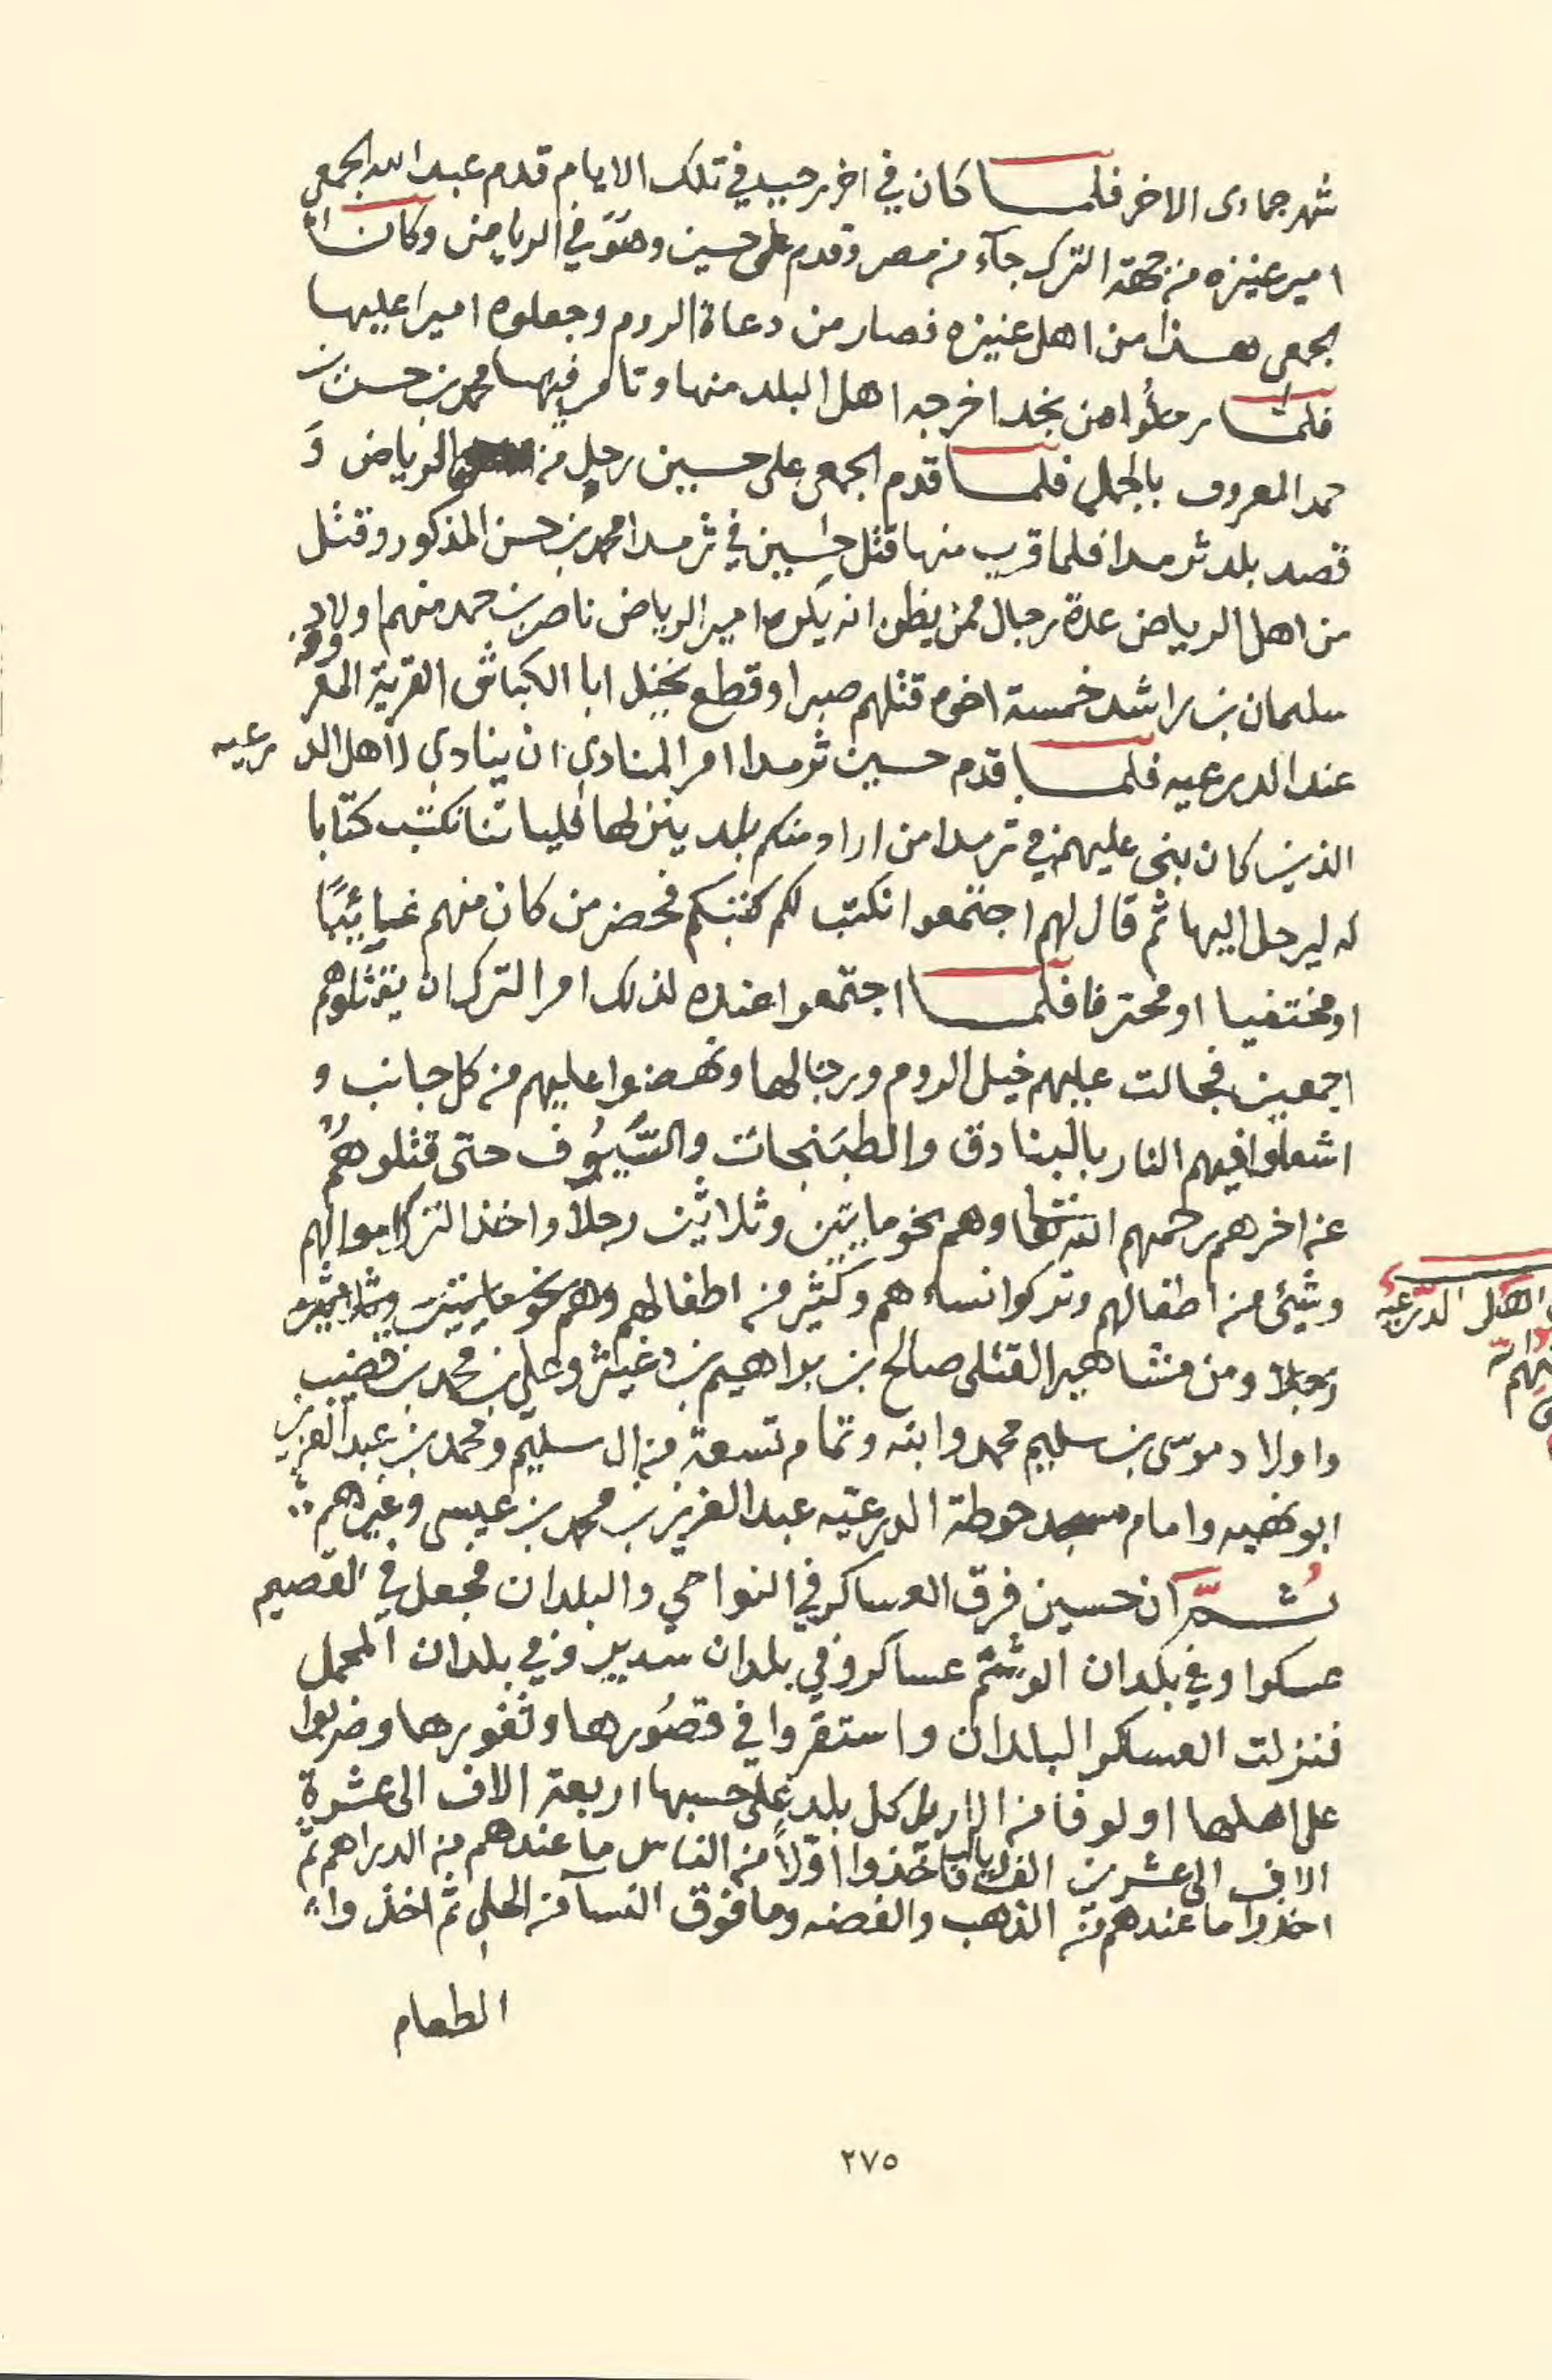 شهر جمادى الاخر فلما كان في اخر رجب في تلك الايام قدم عبد الله الجمعي
امير عنيزه من جهة الترك جآء من مصر وقدم على حسين وهو في الرياض وكان
الجمعي هذا من اهل عنيزه فصار من دعاة الروم وجعلوه اميرا عليها
فلما رحلوا من نجد اخرجه اهل البلد منها وتامر فيها محمد بن حسن بن
حمد المعروف بالجمل فلما قدم الجمعي على حسين رحل من الرياض و
قصد بلد ثرمدا فلما قرب منها قتل حسين في ثرمدا محمد بن حسن المذكور وقتل
من اهل الرياض عدة رجال ممن يظن انه يكره امير الرياض ناصر بن حمد منهم اولاد
سليمان بن راشد خمسة اخوه قتلهم صبرا وقطع نخيل ابا الكباش القرية المعروفه
عند الدرعيه فلما قدم حسين ثرمدا امر المنادي ان ينادي لاهل الدرعيه
الذين كان بنى عليهم في ثرمدا من اراد منكم بلد ينزلها فلياتنا نكتب كتابا
له ليرحل اليها ثم قال لهم اجتمعوا نكتب لكم كتبكم فحضر من كان منهم غايبًا
او مختفيا او محترفا فلما اجتمعوا عنده لذلك امر الترك ان يقتلوهم
اجمعين فجالت عليهم خيل الروم ورجالها ونهضوا عليهم من كل جانب و
اشعلوا فيهم النار بالبنادق والطبنجات والسيوف حتى قتلوهم
عن اخرهم رحمهم الله تعالى وهم نحو مايتين وثلاثين رجلا واخذ الترك اموالهم
وشيئ من اطفالهم وتركوا نساءهم وكثير من اطفالهم وهم نحو مايتين وثلاثين
رجلا ومن مشاهير القتلى صالح بن براهيم بن دغيثر وعلي بن محمد بن قضيب
واولاد موسى بن سليم محمد وابنه وتمام تسعة من ال سليم ومحمد بن عبد العزيز
ابو نهيه وامام مسجد حوطة الدرعيه عبد العزيز بن محمد بن عيسى وغيرهم
ثم ان حسين فرق العساكر في النواحي والبلدان فجعل في القصيم
عسكرا وفي بلدان الوشم عساكر وفي بلدان سدير وفي بلدان المحمل
فنزلت العساكر البلدان واستقروا في قصورها وثغورها وضربوا
على اهلها الوفا من الاريل كل بلد على حسبها اربعة الاف الى عشرة
الاف الى عشرين الف ريال فاخذوا اولاً من الناس ما عندهم من الدراهم ثم
اخذوا ما عندهم من الذهب والفضه وما فوق النسآ من الحلي ثم اخذوا
الطعام
اهل الدرعيه
٢٧٥